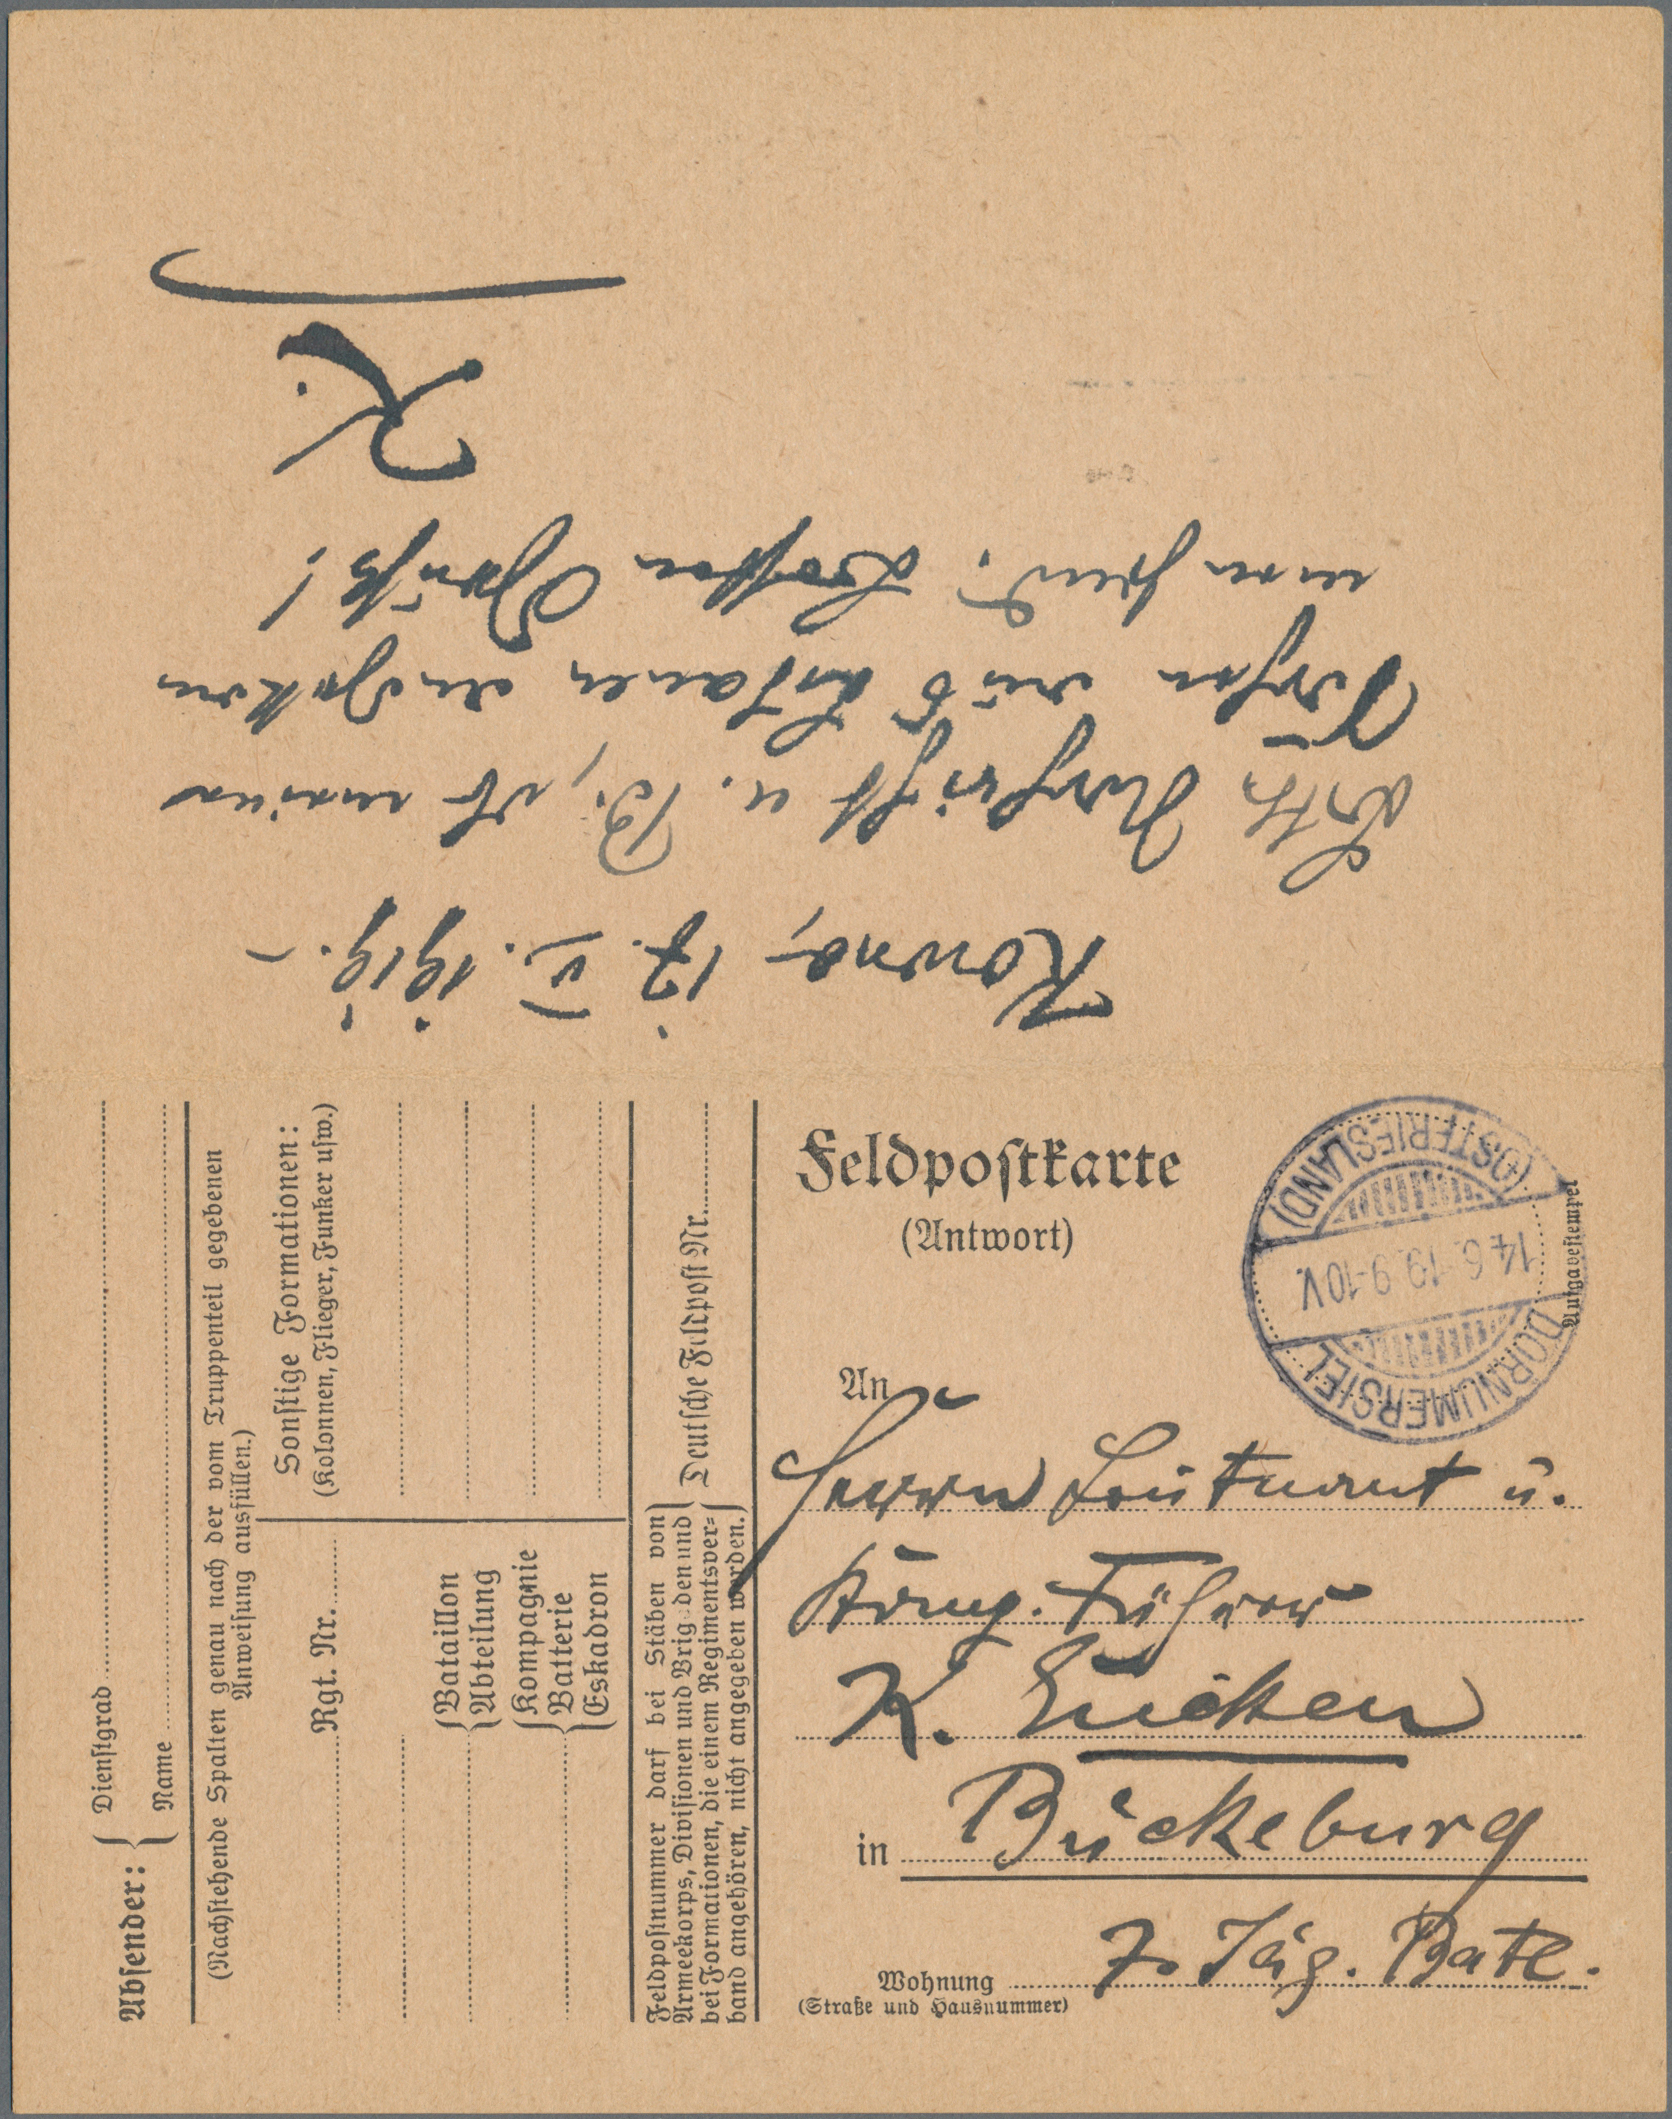 Kowno, 17. V. 1919. –
Bitte Nachricht u. B., ob meine
Sachen aus Litauen angekommen
sind. Besten Gruß!
K.
Feldpostkarte
(Antwort)
Aufgabestempel
DORNUMERSIEL
14.6.19.9-10V.
(OSTFRIESLAND)
An
Herrn Leutnant u.
Komp. Führer
K. Eucken
in Bückeburg
Wohnung 7. Jäg. Batl.
(Straße und Hausnummer)
Absender:
Dienstgrad
Name
(Nachstehende Spalten genau nach der vom Truppenteil gegebenen
Anweisung ausfüllen.)
Rgt. Nr.
Bataillon
Abteilung
Kompagnie
Batterie
Eskadron
Sonstige Formationen:
(Kolonnen, Flieger, Funker usw.)
Feldpostnummer darf bei Stäben von
Armeekorps, Divisionen und Brigaden und
bei Formationen, die einem Regimentsver-
band angehören, nicht angegeben werden.
Deutsche Feldpost Nr.